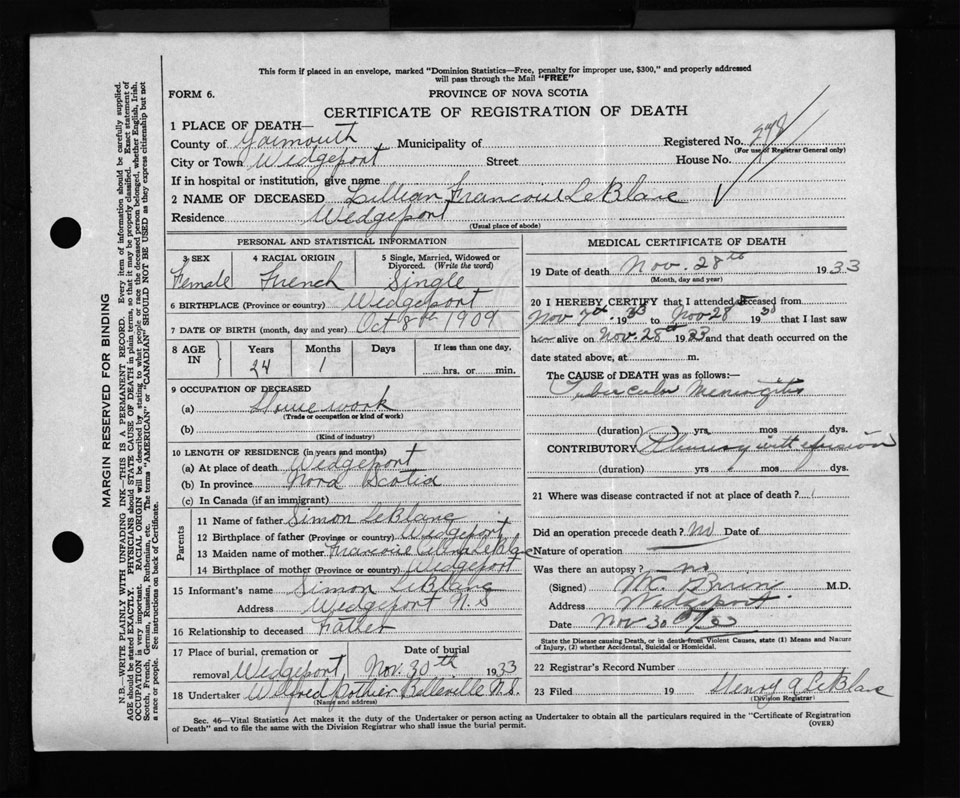 This form if placed in an envelope, marked "Dominion Statistics—Free, penalty for improper use, $300," and properly addressed
will pass through the Mail "FREE"
FORM 6.
PROVINCE OF NOVA SCOTIA
CERTIFICATE OF REGISTRATION OF DEATH
1 PLACE OF DEATH—
County of Yarmouth Municipality of Registered No. 278
(For use of Registrar General only)
City or Town Wedgeport Street House No.
If in hospital or institution, give name
2 NAME OF DECEASED Lillian Francoise LeBlanc
Residence Wedgeport
(Usual place of abode)
PERSONAL AND STATISTICAL INFORMATION
3 SEX Female
4 RACIAL ORIGIN French
5 Single, Married, Widowed or Divorced. (Write the word) Single
6 BIRTHPLACE (Province or country) Wedgeport
7 DATE OF BIRTH (month, day and year) Oct 8th 1909
8 AGE IN Years 24 Months 1 Days If less than one day, hrs. or min.
9 OCCUPATION OF DECEASED
(a) House work
(Trade or occupation or kind of work)
(b)
(Kind of industry)
10 LENGTH OF RESIDENCE (in years and months)
(a) At place of death Wedgeport
(b) In province Nova Scotia
(c) In Canada (if an immigrant)
Parents
11 Name of father Simon LeBlanc
12 Birthplace of father (Province or country) Wedgeport
13 Maiden name of mother Francoise LeBlanc
14 Birthplace of mother (Province or country) Wedgeport
15 Informant's name Simon LeBlanc
Address Wedgeport N.S
16 Relationship to deceased Father
17 Place of burial, cremation or removal Wedgeport, Date of burial Nov. 30th. 1933
18 Undertaker Wilfred Pothier Belleville N.S.
(Name and address)
MEDICAL CERTIFICATE OF DEATH
19 Date of death Nov. 28th 1933
(Month, day and year)
20 I HEREBY CERTIFY that I attended deceased from
Nov 7th. 1933 to Nov 28 1933 that I last saw
her alive on Nov. 28th 1933 and that death occurred on the
date stated above, at m.
The CAUSE of DEATH was as follows:—
Tubercular Meningitis
(duration) yrs. mos dys.
CONTRIBUTORY Pleurisy with effusion
(duration) yrs mos dys.
21 Where was disease contracted if not at place of death?
Did an operation precede death? no Date of
Nature of operation
Was there an autopsy? no
(Signed) M.D.
Address Wedgeport.
Date Nov 30
State the Disease causing Death, or in death from Violent Causes, state (1) Means and Nature
of Injury, (2) whether Accidental, Suicidal or Homicidal.
22 Registrar's Record Number
23 Filed 19 Henry A LeBlanc
(Division Registrar)
Sec. 46—Vital Statistics Act makes it the duty of the Undertaker or person acting as Undertaker to obtain all the particulars required in the "Certificate of Registration
of Death" and to file the same with the Division Registrar who shall issue the burial permit.
(OVER)
MARGIN RESERVED FOR BINDING
N.B.—WRITE PLAINLY WITH UNFADING INK—THIS IS A PERMANENT RECORD. Every item of information should be carefully supplied.
AGE should be stated EXACTLY. PHYSICIANS should STATE CAUSE OF DEATH in plain terms, so that it may be properly classified. Exact statement of
OCCUPATION is very important. RACIAL ORIGIN will be described by stating to what people or race the deceased person belonged, whether English, Irish,
Scotch, French, German, Russian, Ruthenian, etc. The terms "AMERICAN" or "CANADIAN" SHOULD NOT BE USED as they express citizenship but not
a race or people. See instructions on back of Certificate.